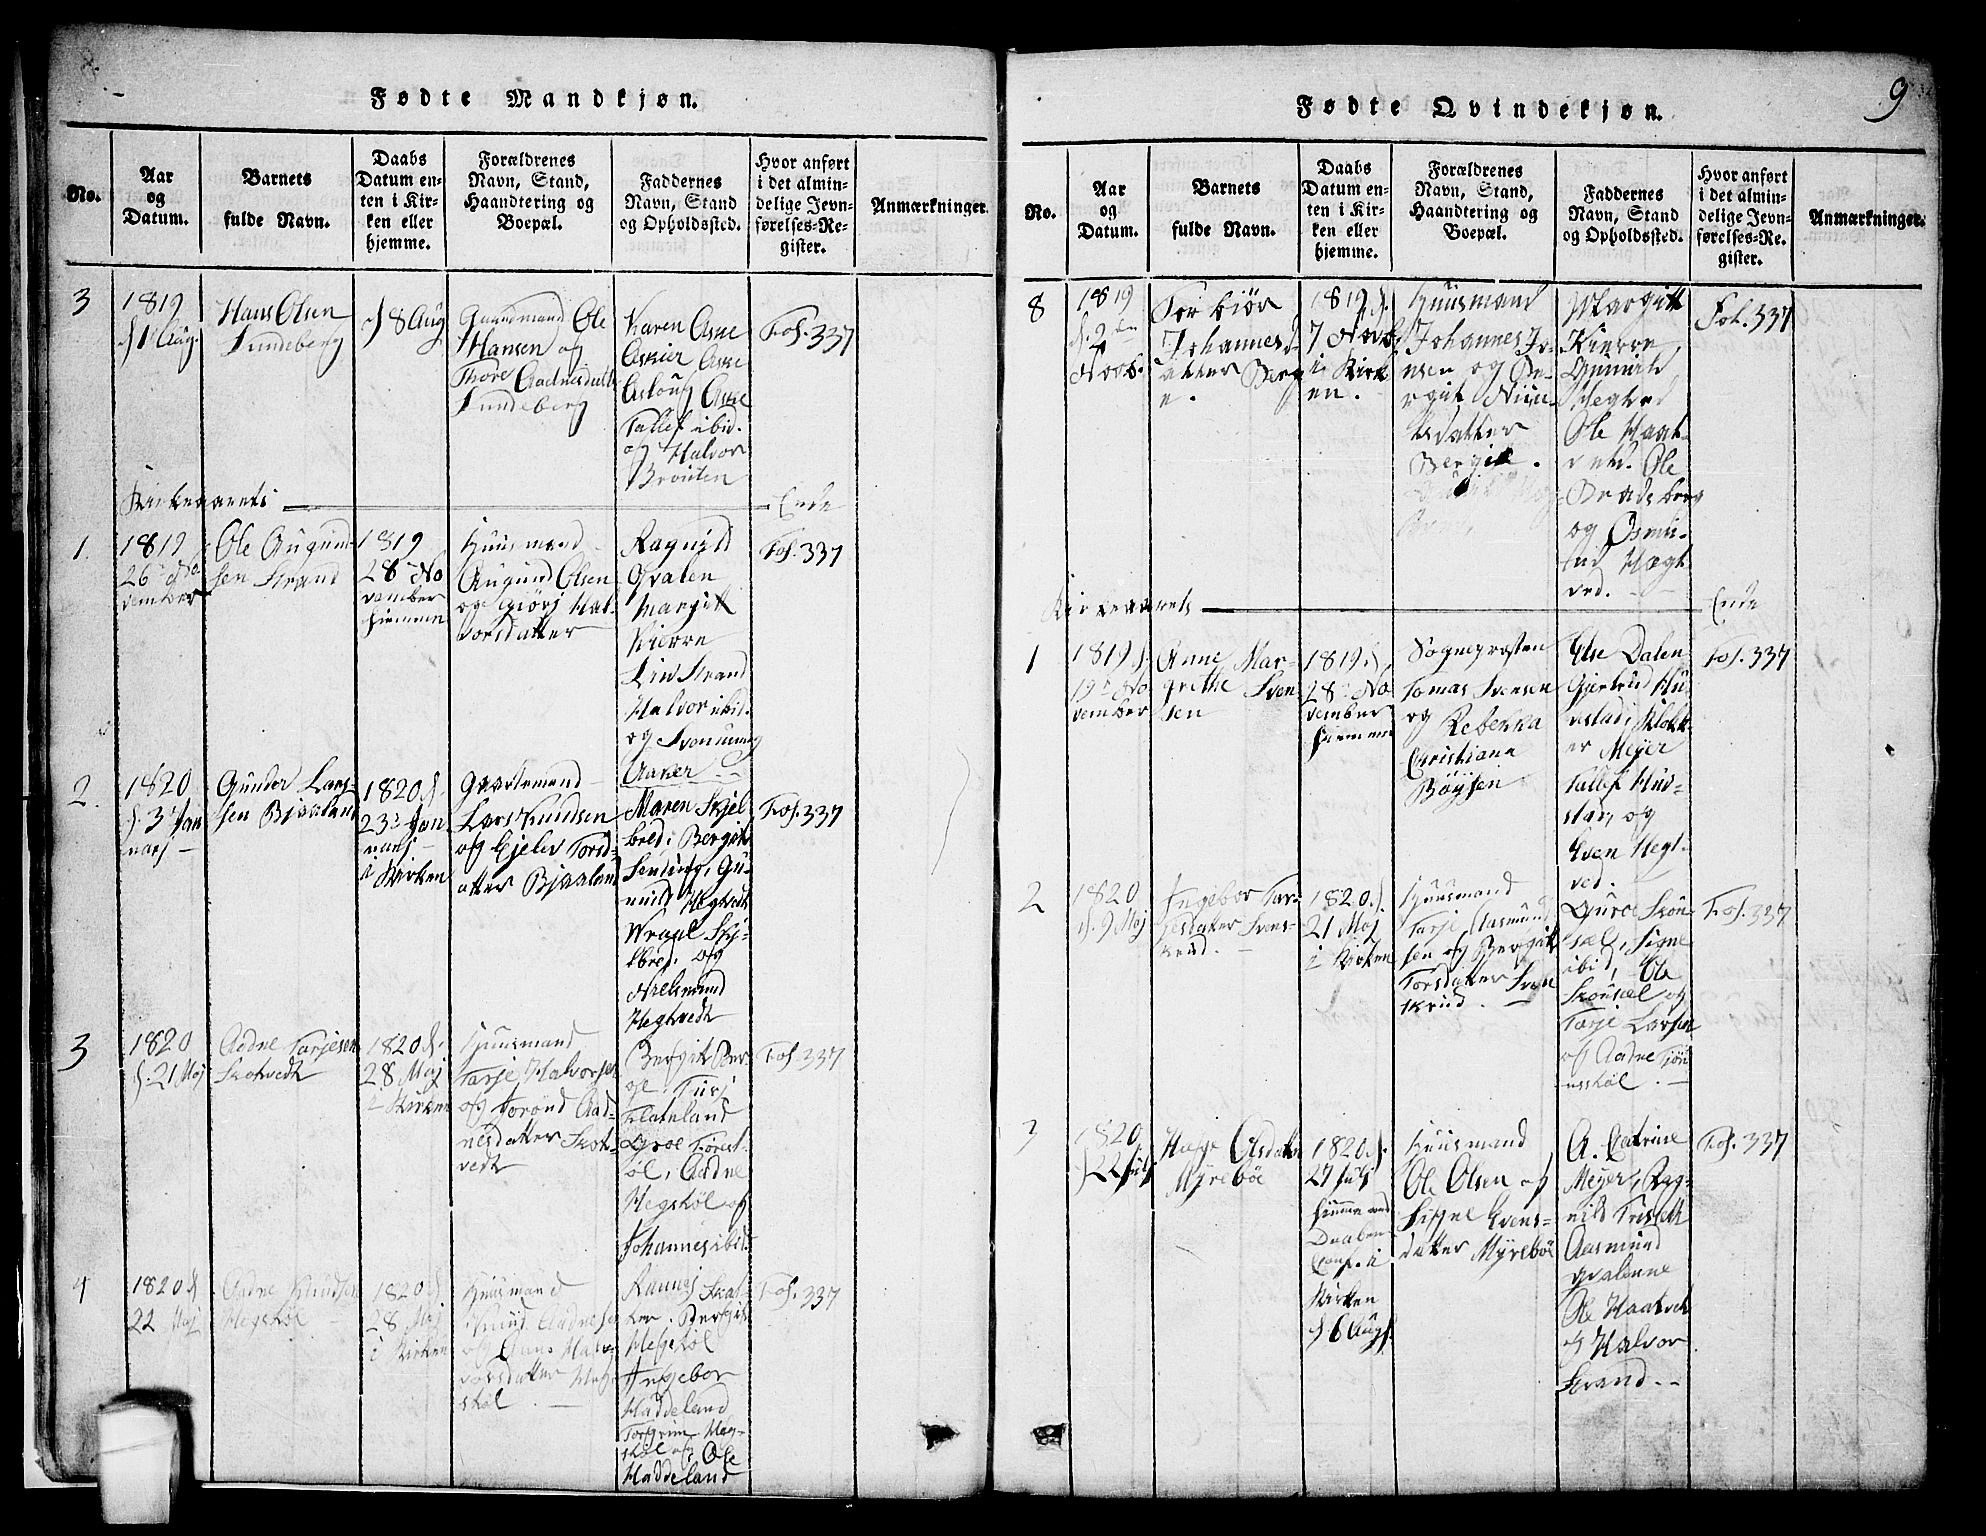 Fødte Mandkjøn.
No.
Aar
og
Datum.
Barnets
fulde Navn.
Daabs
Datum en-
ten i Kir-
ken eller
hjemme.
Forældrenes
Navn, Stand,
Haandtering og
Boepæl.
Faddernes
Navn, Stand
og Opholdssted.
Hvor anført
i det almin-
delige Jevn-
førelses-Re-
gister.
Anmærkninger.
3
1819
d 1 Aug.
Hans Olsen
Sundeberg
d 8 Aug
Gaardmand Ole
Hansen og
Thore Aadnesdatter
Sundeberg
Karen Aske
Askier Aske
Asloug Aske
Tallef ibid.
og Halvor
Brouten
Fol. 337
Kirkeaarets — Ende
1.
1819
26de No
vember
Ole Augund
sen Strand
1819
28de No
vember
hiemme
Huusmand
Augund Olsen
og Giørj Hal
vorsdatter
Ragnild
Qvalen
Margit
Kierre
Liv Strand
Halvor ibid.
og Svenung
Aaker
Fol. 337
2.
1820
d. 3de Jan
narj
Gunder Lars-
sen Bjaaland
1820 d.
23de Jan
narj
i Kirken
Gaardemand
Lars Knudsen
og Ejelev Torsd-
atter Bjaaland
Maren Skjel
bred, Bergit
Gu-
nnild Hegtvedt
Wraal Skj-
lbred. og
Hegtvedt
Fol. 337
3
1820
d. 21 Maj
Aadne Tarjesen
Skotvedt
1820 d.
28 Maj
i Kirken
Huusmand
Tarje Halvorsen
og Torønd Aad-
nesdatter Skot-
vedt
Bergit Ber-
ge. Turj
Flateland
Groe Torest-
øl, Aadne
Hegstøl og
Johannes ibid.
Fol. 337
4
1820 d
22 Maj
Aadne Knudsen
Hegstøl
1820 d.
28 Maj
i Kirken
Huusmand
Knud Aadnesen
og Hal-
vorsdatter Heg-
støl
Bergit
Hegstøl
Ingebor
Haddeland
Torgrim Heg-
støl og Ole
Haddeland
Fol. 337
9
Fødte Qvindekjøn.
No.
Aar
og
Datum.
Barnets
fulde Navn.
Daabs
Datum en-
ten i Kir-
ken eller
hjemme.
Forældrenes
Navn, Stand,
Haandtering og
Boepæl.
Faddernes
Navn, Stand
og Opholdssted.
Hvor anført
i det almin-
delige Jevn-
førelses-Re-
gister.
Anmærkninger.
8
1819
d. 2den
Novb.
Torbiør
Johannesd-
atter Berg
e.
1819 d.
7 Novb.
i Kirk
en.
Huusmand
Johannes Jo-
nsen og Be-
rgit
datter
Bergie.
Margitt
Kierre
Gunnild
Hegtved
Ole Haat-
vedt. Ole
Bradsberg
og Osmu-
nd Hegt
ved.
Fol. 337
Kirkeaarets — Ende
1
1819 d.
19de No
vember
Anne Mar-
grethe Sven
sen
1819 d.
28de No
vember
hiemme
Sognepresten
Tomas Svensen
og Rebekka
Christiana
Bøysen
Else Dalen
Gjertrud Hu-
vestad, Klokk-
er Meyer
Tallef Huv-
stad, og
Even Hegt-
ved.
Fol. 337
2
1820
d. 9 Maj
Ingebor Tar-
jesdatter Svens-
krud.
1820 d.
21 Maj
i Kirken
Huusmand
Tarje Aasmund
sen og Bergit
Torsdatter Svens
krud.
Guroe Skon-
sæl, Signe
ibid, Ole
Skonsæl og
Tarje Larsen
og Aadne
Fol. 337
3
1820
d 22 Julj
Helge Olsdatter
Myrebøe
1820 d.
27 Julj
hiemme med
Daaben
Conf. i
Kirken
d 6 Aug.
Huusmand
Ole Olsen og
Signe Evens-
datter Myrebøe
A. Catrine
Meyer, Rag-
nild Tristett
Aasmund
Qvalenne
Ole Haatvedt
og Halvor
Strand.
Fol. 337